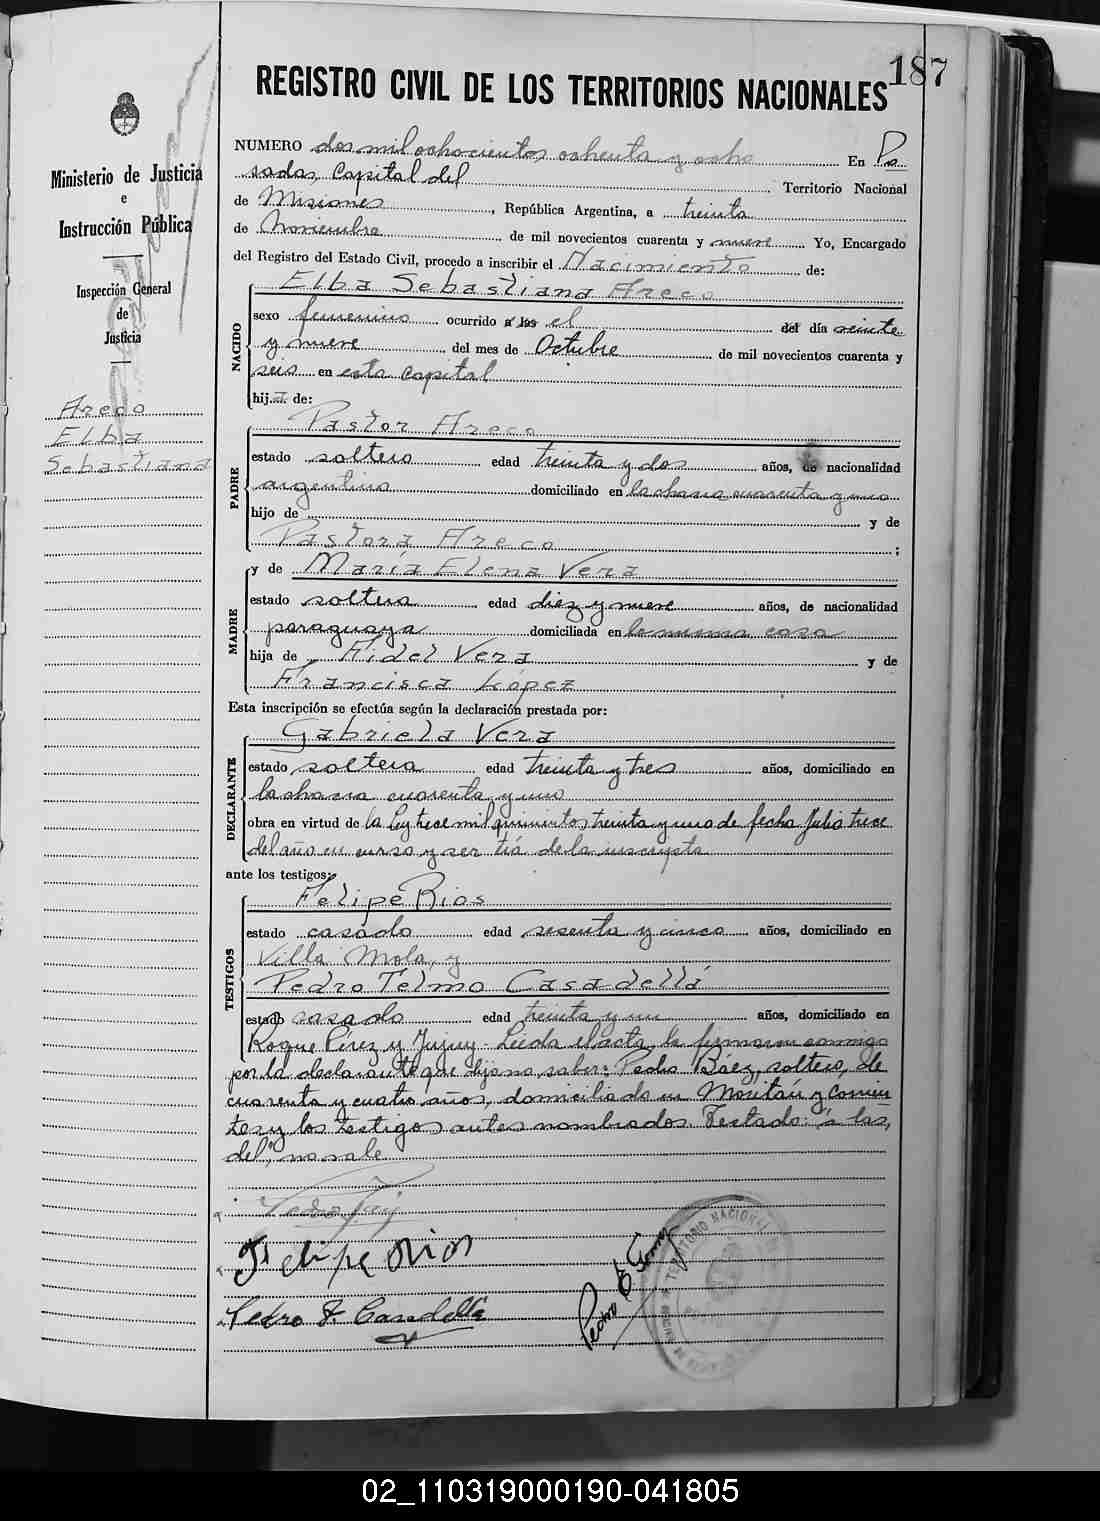 187
REGISTRO CIVIL DE LOS TERRITORIOS NACIONALES
Ministerio de Justicia
e
Instrucción Pública
Inspección General
de
Justicia
Areco
Elba
Sebastiana
NUMERO dos mil ochocientos ochenta y ocho En Po
sadas, Capital del Territorio Nacional
de Misiones, República Argentina, a treinta
de Noviembre de mil novecientos cuarenta y nueve Yo, Encargado
del Registro del Estado Civil, procedo a inscribir el Nacimiento de:
NACIDO
Elba Sebastiana Areco
sexo femenino ocurrido a las el del día veinte
y nueve del mes de Octubre de mil novecientos cuarenta y
seis en esta capital
hija de:
PADRE
Pastor Areco
estado soltero edad treinta y dos años, de nacionalidad
argentino domiciliado en la chacra cuarenta y uno
hijo de y de
Pastora Areco ;
MADRE
y de María Elena Vera
estado soltera edad diez y nueve años, de nacionalidad
paraguaya domiciliada en la misma casa
hija de Fidel Vera y de
Francisca López
Esta inscripción se efectúa según la declaración prestada por:
DECLARANTE
Gabriela Vera
estado soltera edad treinta y tres años, domiciliado en
la chacra cuarenta y uno
obra en virtud de la Ley trece mil quinientos treinta y uno de fecha Julio trece
del año en curso y ser tía de la inscripta
ante los testigos:
TESTIGOS
Felipe Rios
estado casado edad sesenta y cinco años, domiciliado en
Villa Mola, y
Pedro Telmo Casadellá
estado casado edad treinta y un años, domiciliado en
Roque Pérez y Jujuy. Leída el acta, la firmaron conmigo
por la declarante que dijo no saber: Pedro Báez, soltero, de
cuarenta y cuatro años, domiciliado en y Corrien
tes y los testigos antes nombrados. Testado: "a las,
del", no vale
Felipe Rios
Pedro T. Casadellá
Pedro E.
TERRITORIO NACIONAL
02_110319000190-041805